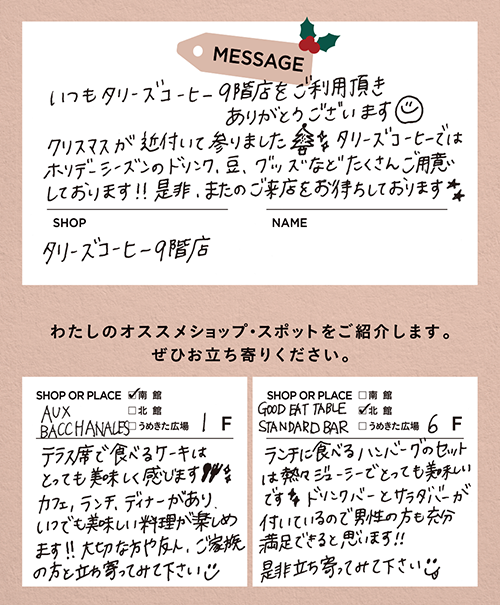 MESSAGE
いつもタリーズコーヒー9階店をご利用頂き
ありがとうございます
クリスマスが近付いて参りました タリーズコーヒーでは
ホリデーシーズンのドリンク、豆、グッズなどたくさんご用意
しております!!是非、またのご来店をお待ちしております
SHOP NAME
タリーズコーヒー9階店
わたしのオススメショップ・スポットをご紹介します。
ぜひお立ち寄りください。
SHOP OR PLACE ☑南 館
AUX □北 館
BACCHANALES □うめきた広場 1 F
テラス席で食べるケーキは
とっても美味しく感じます
カフェ、ランチ、ディナーがあり
いつでも美味しい料理が楽しめ
ます!!大切な方や友人、ご家族
の方と立ち寄ってみて下さい
SHOP OR PLACE □南 館
GOOD EAT TABLE ☑北 館
STANDARD BAR □うめきた広場 6 F
ランチに食べるハンバーグのセット
は熱々ジューシーでとっても美味しい
です ドリンクバーとサラダバーが
付いているので男性の方も充分
満足できると思います!!
是非立ち寄ってみて下さい